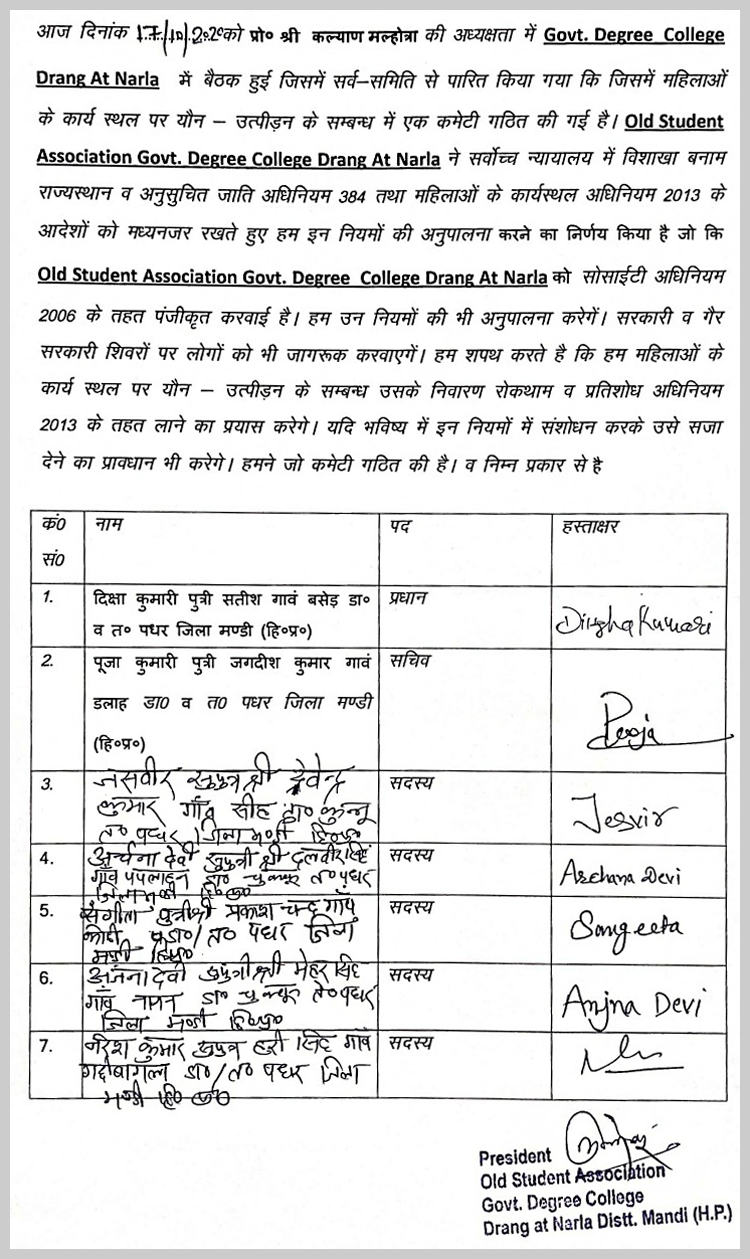 आज दिनांक 17/10/2020को प्रो० श्री कल्याण मल्होत्रा की अध्यक्षता में Govt. Degree College
Drang At Narla में बैठक हुई जिसमें सर्व–समिति से पारित किया गया कि जिसमें महिलाओं
के कार्य स्थल पर यौन – उत्पीड़न के सम्बन्ध में एक कमेटी गठित की गई है। Old Student
Association Govt. Degree College Drang At Narla ने सर्वोच्च न्यायालय में विशाखा बनाम
राज्यस्थान व अनुसुचित जाति अधिनियम 384 तथा महिलाओं के कार्यस्थल अधिनियम 2013 के
आदेशों को मध्यनजर रखते हुए हम इन नियमों की अनुपालना करने का निर्णय किया है जो कि
Old Student Association Govt. Degree College Drang At Narla को सोसाईटी अधिनियम
2006 के तहत पंजीकृत करवाई है। हम उन नियमों की भी अनुपालना करेगें। सरकारी व गैर
सरकारी शिवरों पर लोगों को भी जागरूक करवाएगें। हम शपथ करते है कि हम महिलाओं के
कार्य स्थल पर यौन – उत्पीड़न के सम्बन्ध उसके निवारण रोकथाम व प्रतिशोध अधिनियम
2013 के तहत लाने का प्रयास करेगे। यदि भविष्य में इन नियमों में संशोधन करके उसे सजा
देने का प्रावधान भी करेगे। हमने जो कमेटी गठित की है। व निम्न प्रकार से है
कं0 सं0 नाम पद हस्ताक्षर
1. दिक्षा कुमारी पुत्री सतीश गावं बसेड़ डा० प्रधान Diksha Kumari
व त० पधर जिला मण्डी (हि०प्र०)
2. पूजा कुमारी पुत्री जगदीश कुमार गावं सचिव
डलाह डा0 व त0 पधर जिला मण्डी Pooja
(हि०प्र०)
3. जसवीर सुपुत्र श्री देवेन्द्र सदस्य
कुमार गाँव सीह डा० कुन्नू Jasvir
त० पधर जिला मण्डी हि०प्र०
4. अर्चना देवी सुपुत्री श्री दलवीर सिंह सदस्य
गाँव पपलाहन डा० चुक्कू त० पधर Archana Devi
जिला मण्डी हि०प्र०
5. संगीता पुत्री श्री प्रकाश चन्द गाँव सदस्य
डा०/त० पधर जिला Sangeeta
मण्डी हि०प्र०
6. अंजना देवी सुपुत्री श्री मेहर सिंह सदस्य
गाँव डा० चुक्कू त० पधर Anjna Devi
जिला मण्डी हि०प्र०
7. नरेश कुमार सुपुत्र हरी सिंह गाँव सदस्य
डा०/त० पधर जिला
मण्डी हि०प्र०
President
Old Student Association
Govt. Degree College
Drang at Narla Distt. Mandi (H.P.)